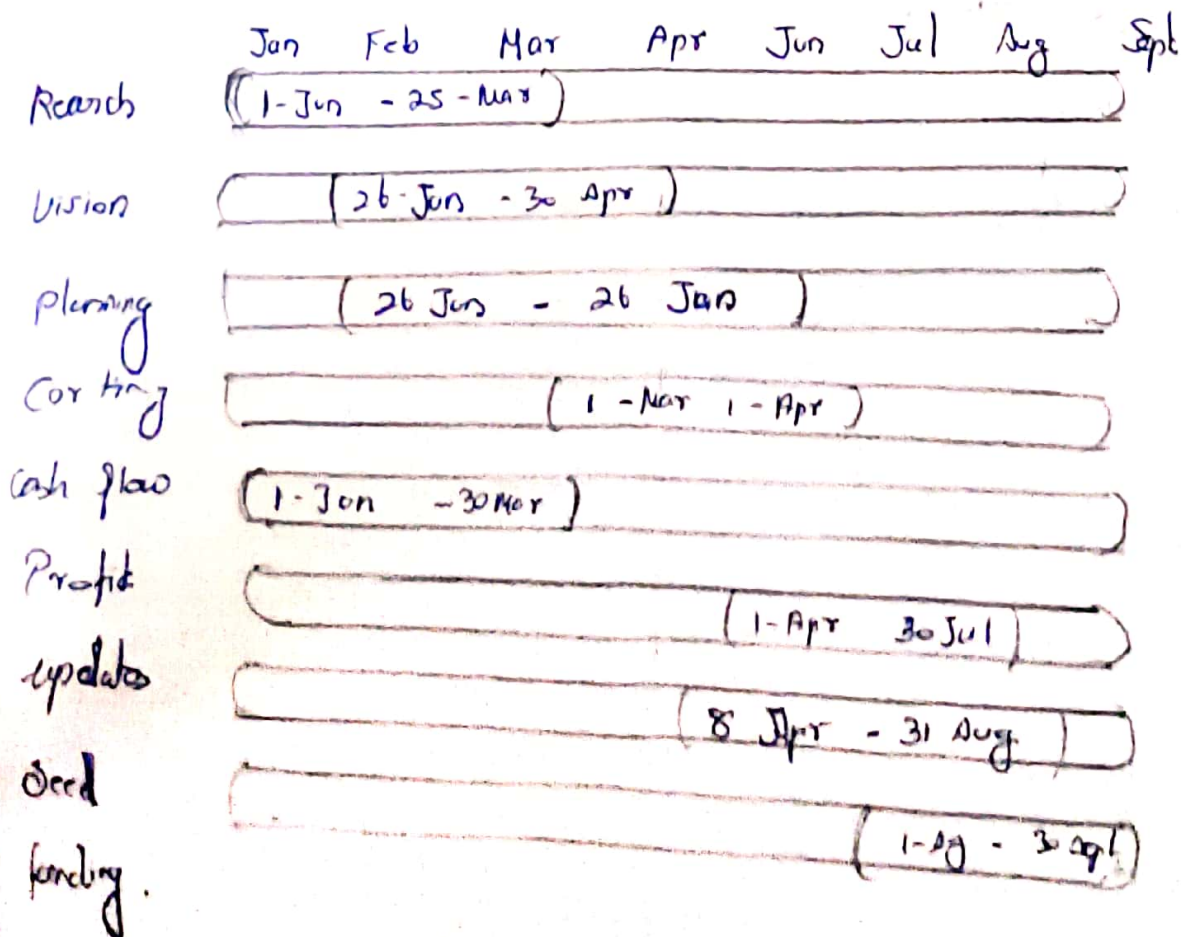 Jan Feb Mar Apr Jun Jul Aug Sept
Research 1-Jan - 25-Mar
Vision 26-Jan - 30 Apr
Planning 26 Jan - 26 Jun
Costing 1-Mar 1-Apr
Cash flow 1-Jan - 30 Mar
Profit 1-Apr 30 Jul
updates 8 Apr - 31 Aug
Seed 1-Ag - 30 sept
funding.